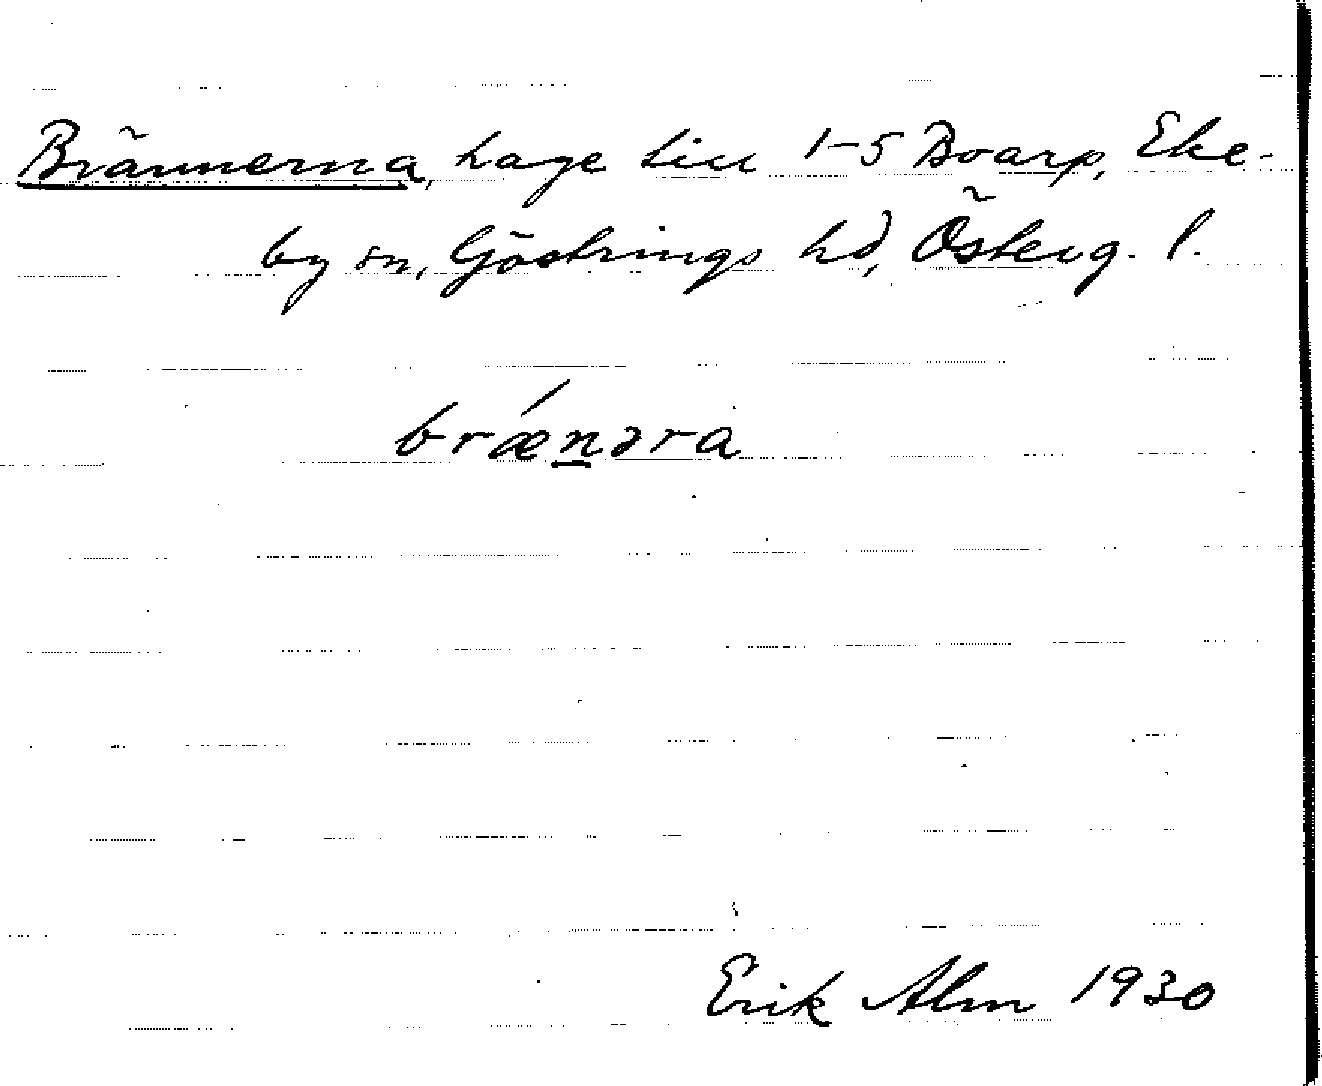 Brännerna, hage till 1-5 Boarp, Eke-
by sn, Göstrings hd, Österg. l.
brǽn̲əra
Erik Alm 1930